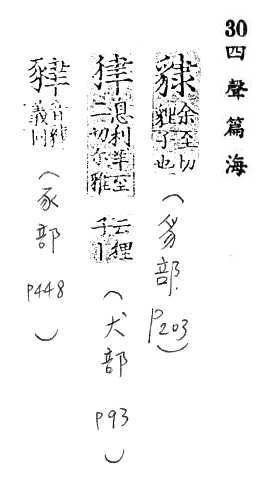 30 四聲篇海
貄 余至切 子也
（豸部 P203）
息利羊至二切尔雅云狸子
（犬部 P93）
音 義同
（豕部 P448）